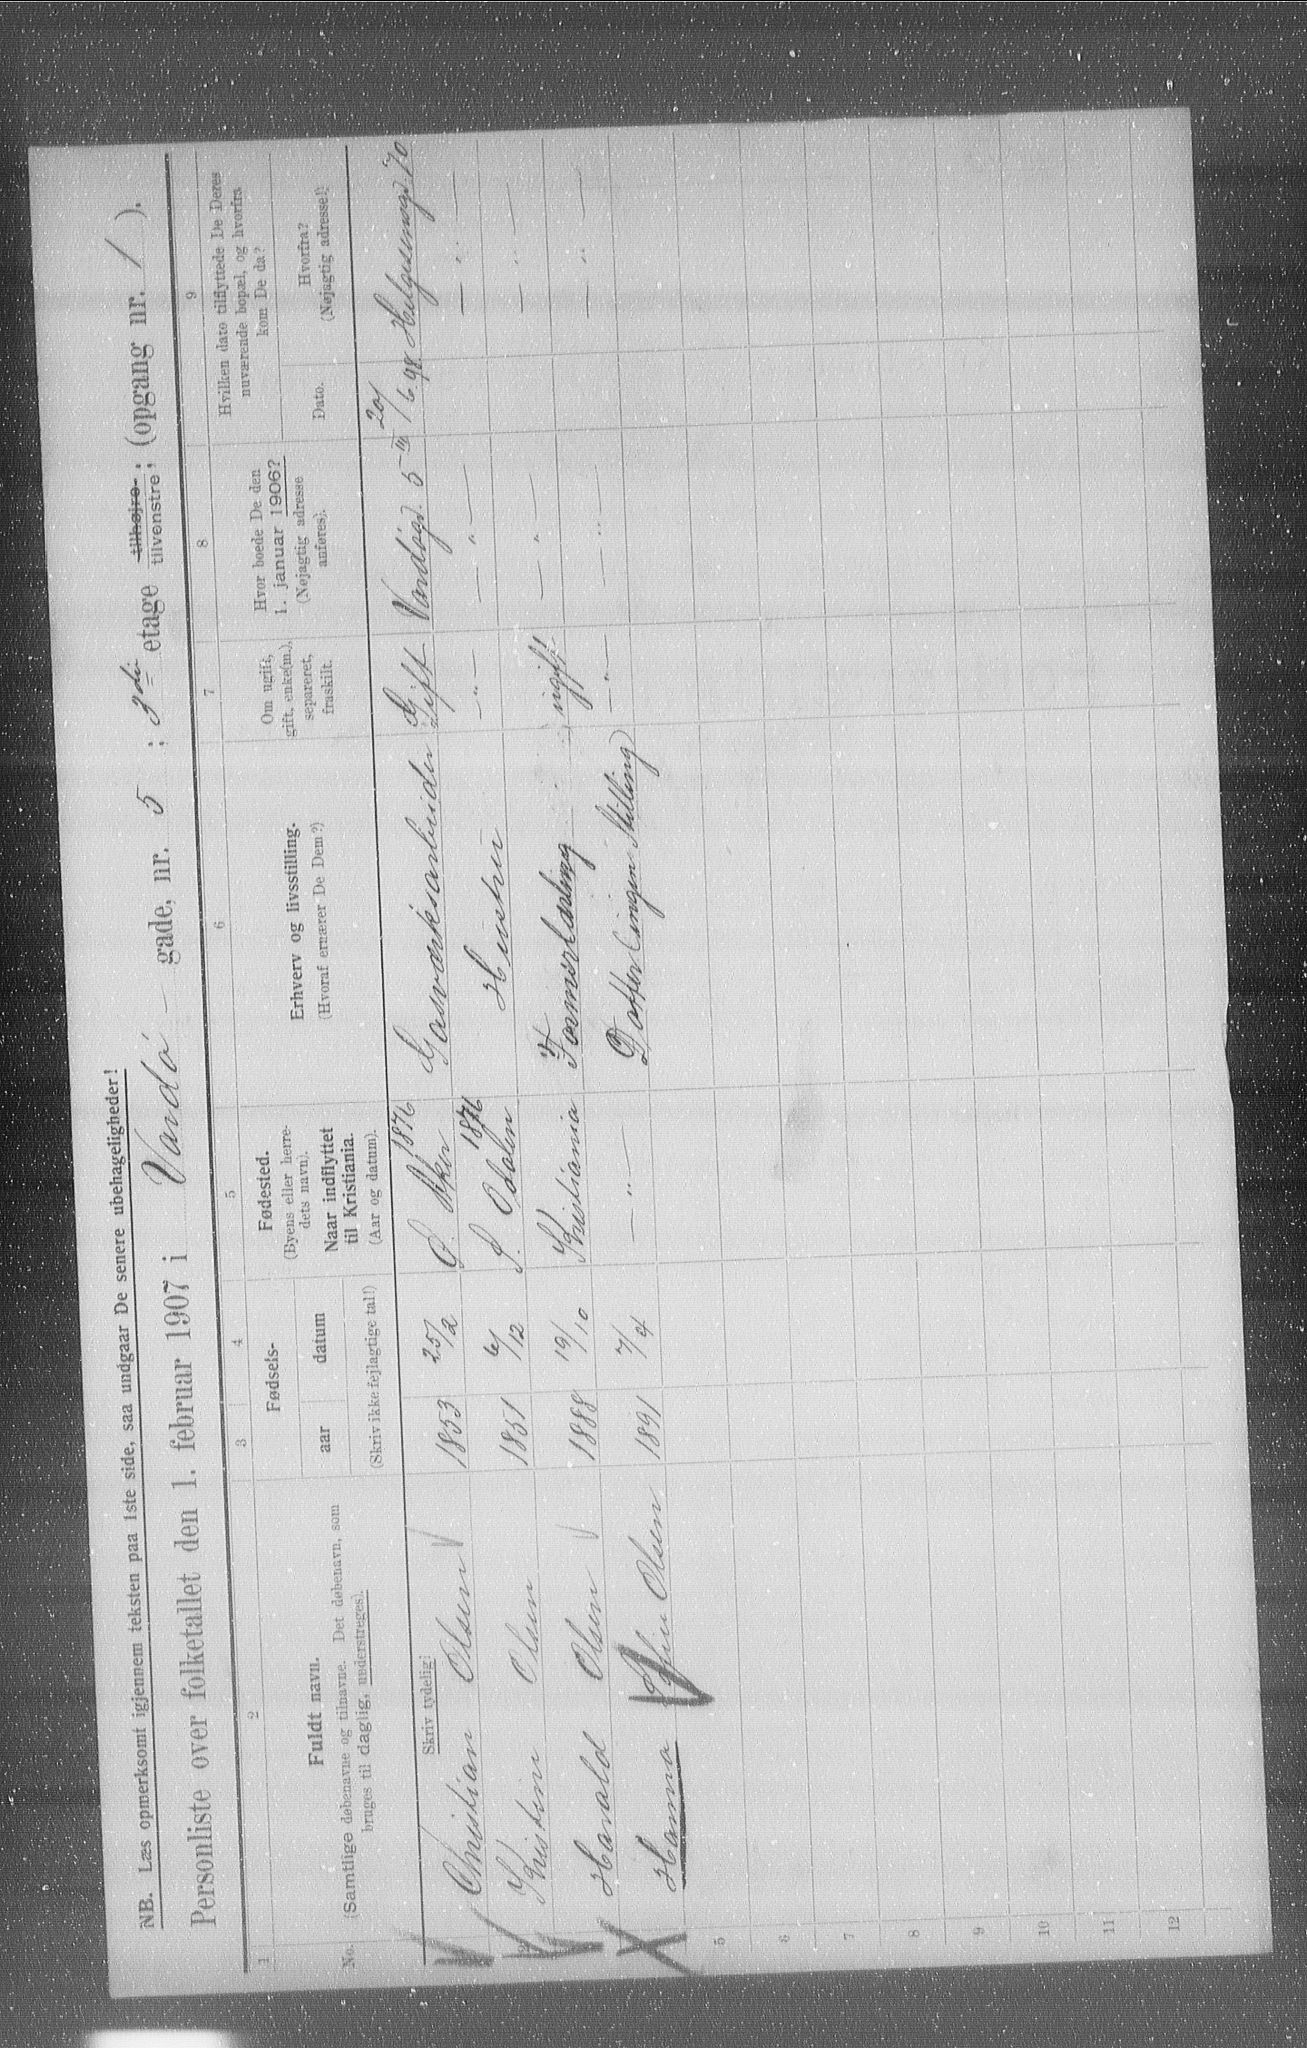 NB. Læs opmerksomt igjennem teksten paa 1ste side, saa undgaar De senere ubehageligheder!
Personliste over folketallet den 1. februar 1907 i Vandö - gade, nr. 5 ; 3die etage tilhøjre, tilvenstre; (opgang nr. 1 ).
1 2 3 4 5 6 7 8 9
No.
Fuldt navn.
(Samtlige døbenavne og tilnavne. Det døbenavn, som
bruges til daglig, understreges).
Fødsels-
aar datum
(Skriv ikke fejlagtige tal!)
Fødested.
(Byens eller herre-
dets navn).
Naar indflyttet
til Kristiania.
(Aar og datum).
Erhverv og livsstilling.
(Hvoraf ernærer De Dem?)
Om ugift,
gift, enke(m.),
separeret,
fraskilt.
Hvor boede De den
1. januar 1906?
(Nøjagtig adresse
anføres).
Hvilken dato tilflyttede De Deres
nuværende bopæl, og hvorfra
kom De da?
Dato.
Hvorfra?
(Nøjagtig adresse!)
Skriv tydelig!
Christian Olsen 1853 25/2 Ø. Aker 1876 Gasværksarbeider Gift Vandögd. 5 III 20/6 98 Helgesensgd. 70
Kristine Olsen 1851 6/12 S. Odalen 1876 Hustru — " — — " — — " —
Harald Olsen 1888 19/10 Kristiania Formerlærling ugift — " — — " —
Hanna Olsen 1891 7/4 — " — Datter (ingen Stilling) — " — — " — — " —
5
6
7
8
9
10
11
12